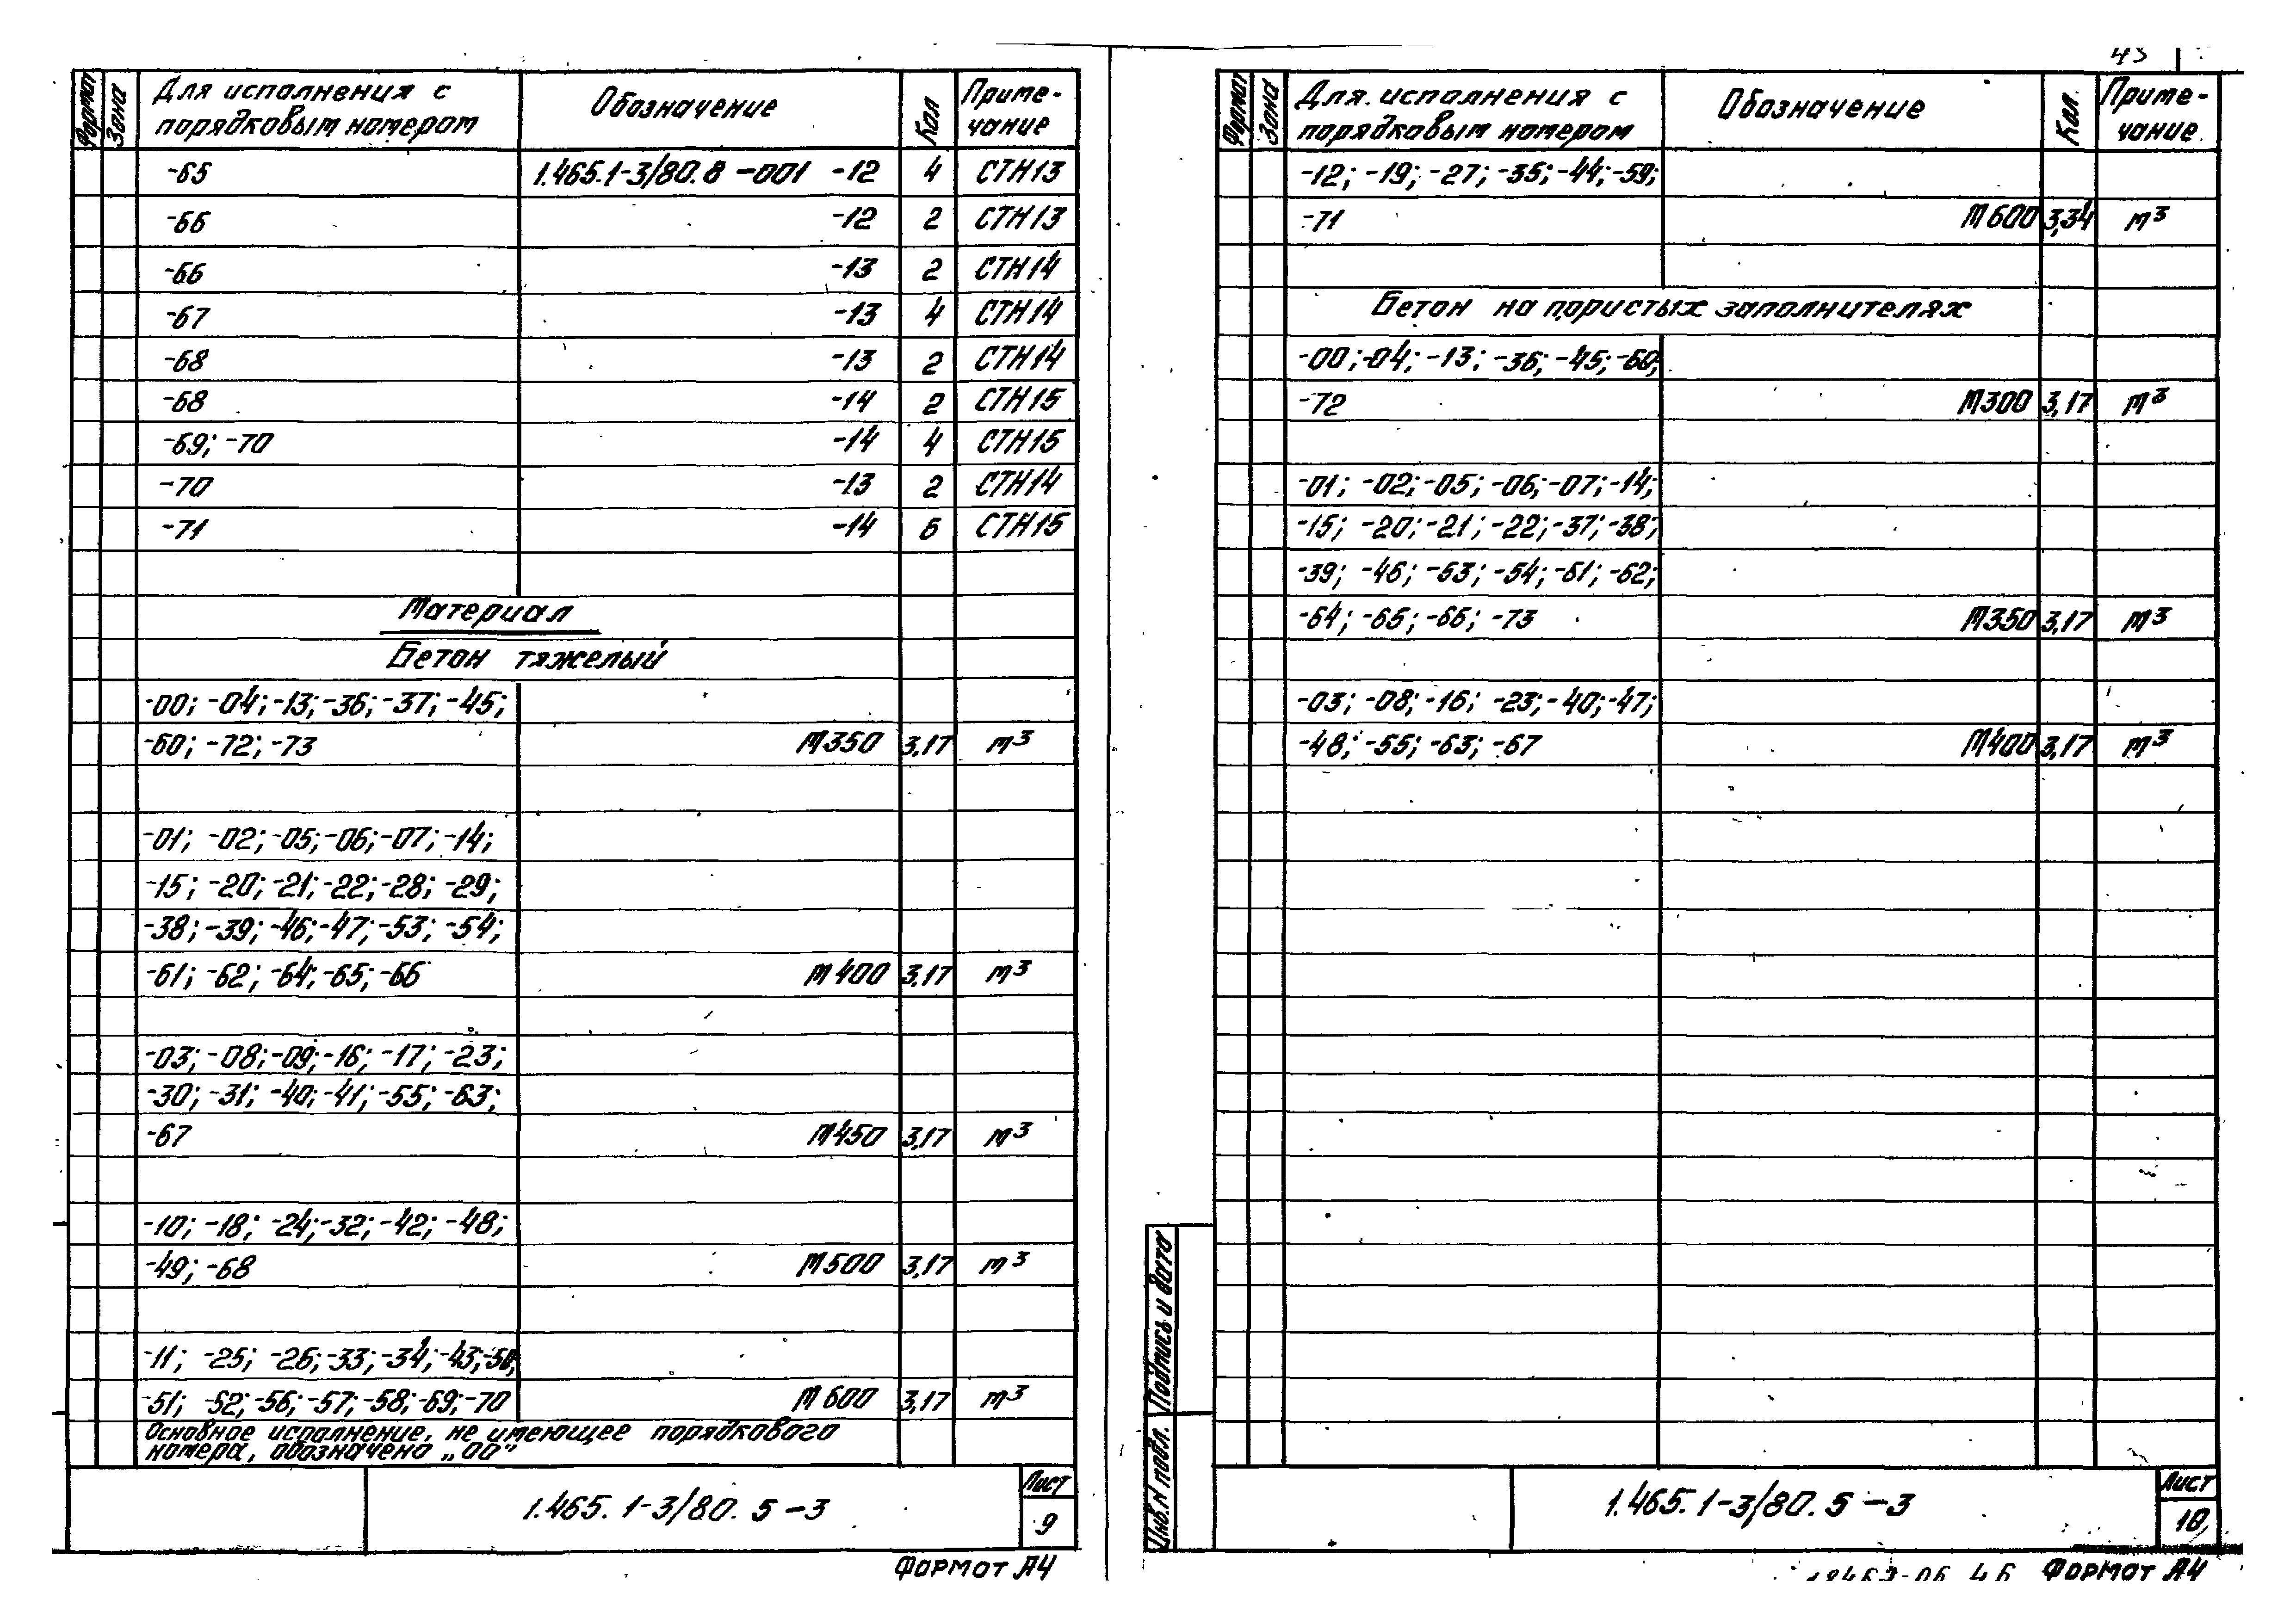 Формат Зона Для исполнения с порядковым номером Обозначение Кол Приме-чание
-65 1.465.1-3/80.8 -001 -12 4 СТН13
-66 -12 2 СТН13
-66 -13 2 СТН14
-67 -13 4 СТН14
-68 -13 2 СТН14
-68 -14 2 СТН15
-69; -70 -14 4 СТН15
-70 -13 2 СТН14
-71 -14 6 СТН15
Материал
Бетон тяжелый
-00; -04; -13; -36; -37; -45;
-60; -72; -73 М350 3,17 м³
-01; -02; -05; -06; -07; -14;
-15; -20; -21; -22; -28; -29;
-38; -39; -46; -47; -53; -54;
-61; -62; -64; -65; -66 М400 3,17 м³
-03; -08; -09; -16; -17; -23;
-30; -31; -40; -41; -55; -63;
-67 М450 3,17 м³
-10; -18; -24; -32; -42; -48;
-49; -68 М500 3,17 м³
-11; -25; -26; -33; -34; -43; -50;
-51; -52; -56; -57; -58; -69; -70 М600 3,17 м³
Основное исполнение, не имеющее порядкового
номера, обозначено „00"
1.465.1-3/80.5-3
Лист
9
Формат А4
Формат Зона Для исполнения с порядковым номером Обозначение Кол. Приме-чание
-12; -19; -27; -35; -44; -59;
-71 М600 3,34 м³
Бетон на пористых заполнителях
-00; -04; -13; -36; -45; -60;
-72 М300 3,17 м³
-01; -02; -05; -06; -07; -14;
-15; -20; -21; -22; -37; -38;
-39; -46; -53; -54; -61; -62;
-64; -65; -66; -73 М350 3,17 м³
-03; -08; -16; -23; -40; -47;
-48; -55; -63; -67 М400 3,17 м³
Инв.N подл. Подпись и дата
1.465.1-3/80.5-3
Лист
10
Формат А4